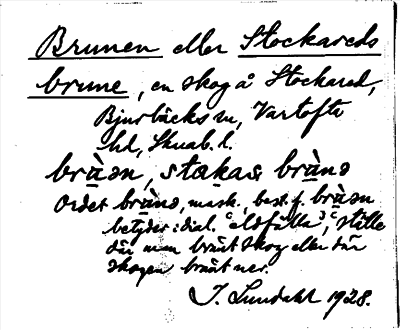 Brunen eller Stockareds
brune, en skog å Stockared,
Bjurbäcks sn, Vartofta
hd, Skarab. l.
bràən, stakas brànə
Ordet bràna, mask., best. f. bràən
betyder: dial. "eldfälla", "ställe
där man bränt skog eller där
skogen bränt ner.
J. Lundahl 1928.